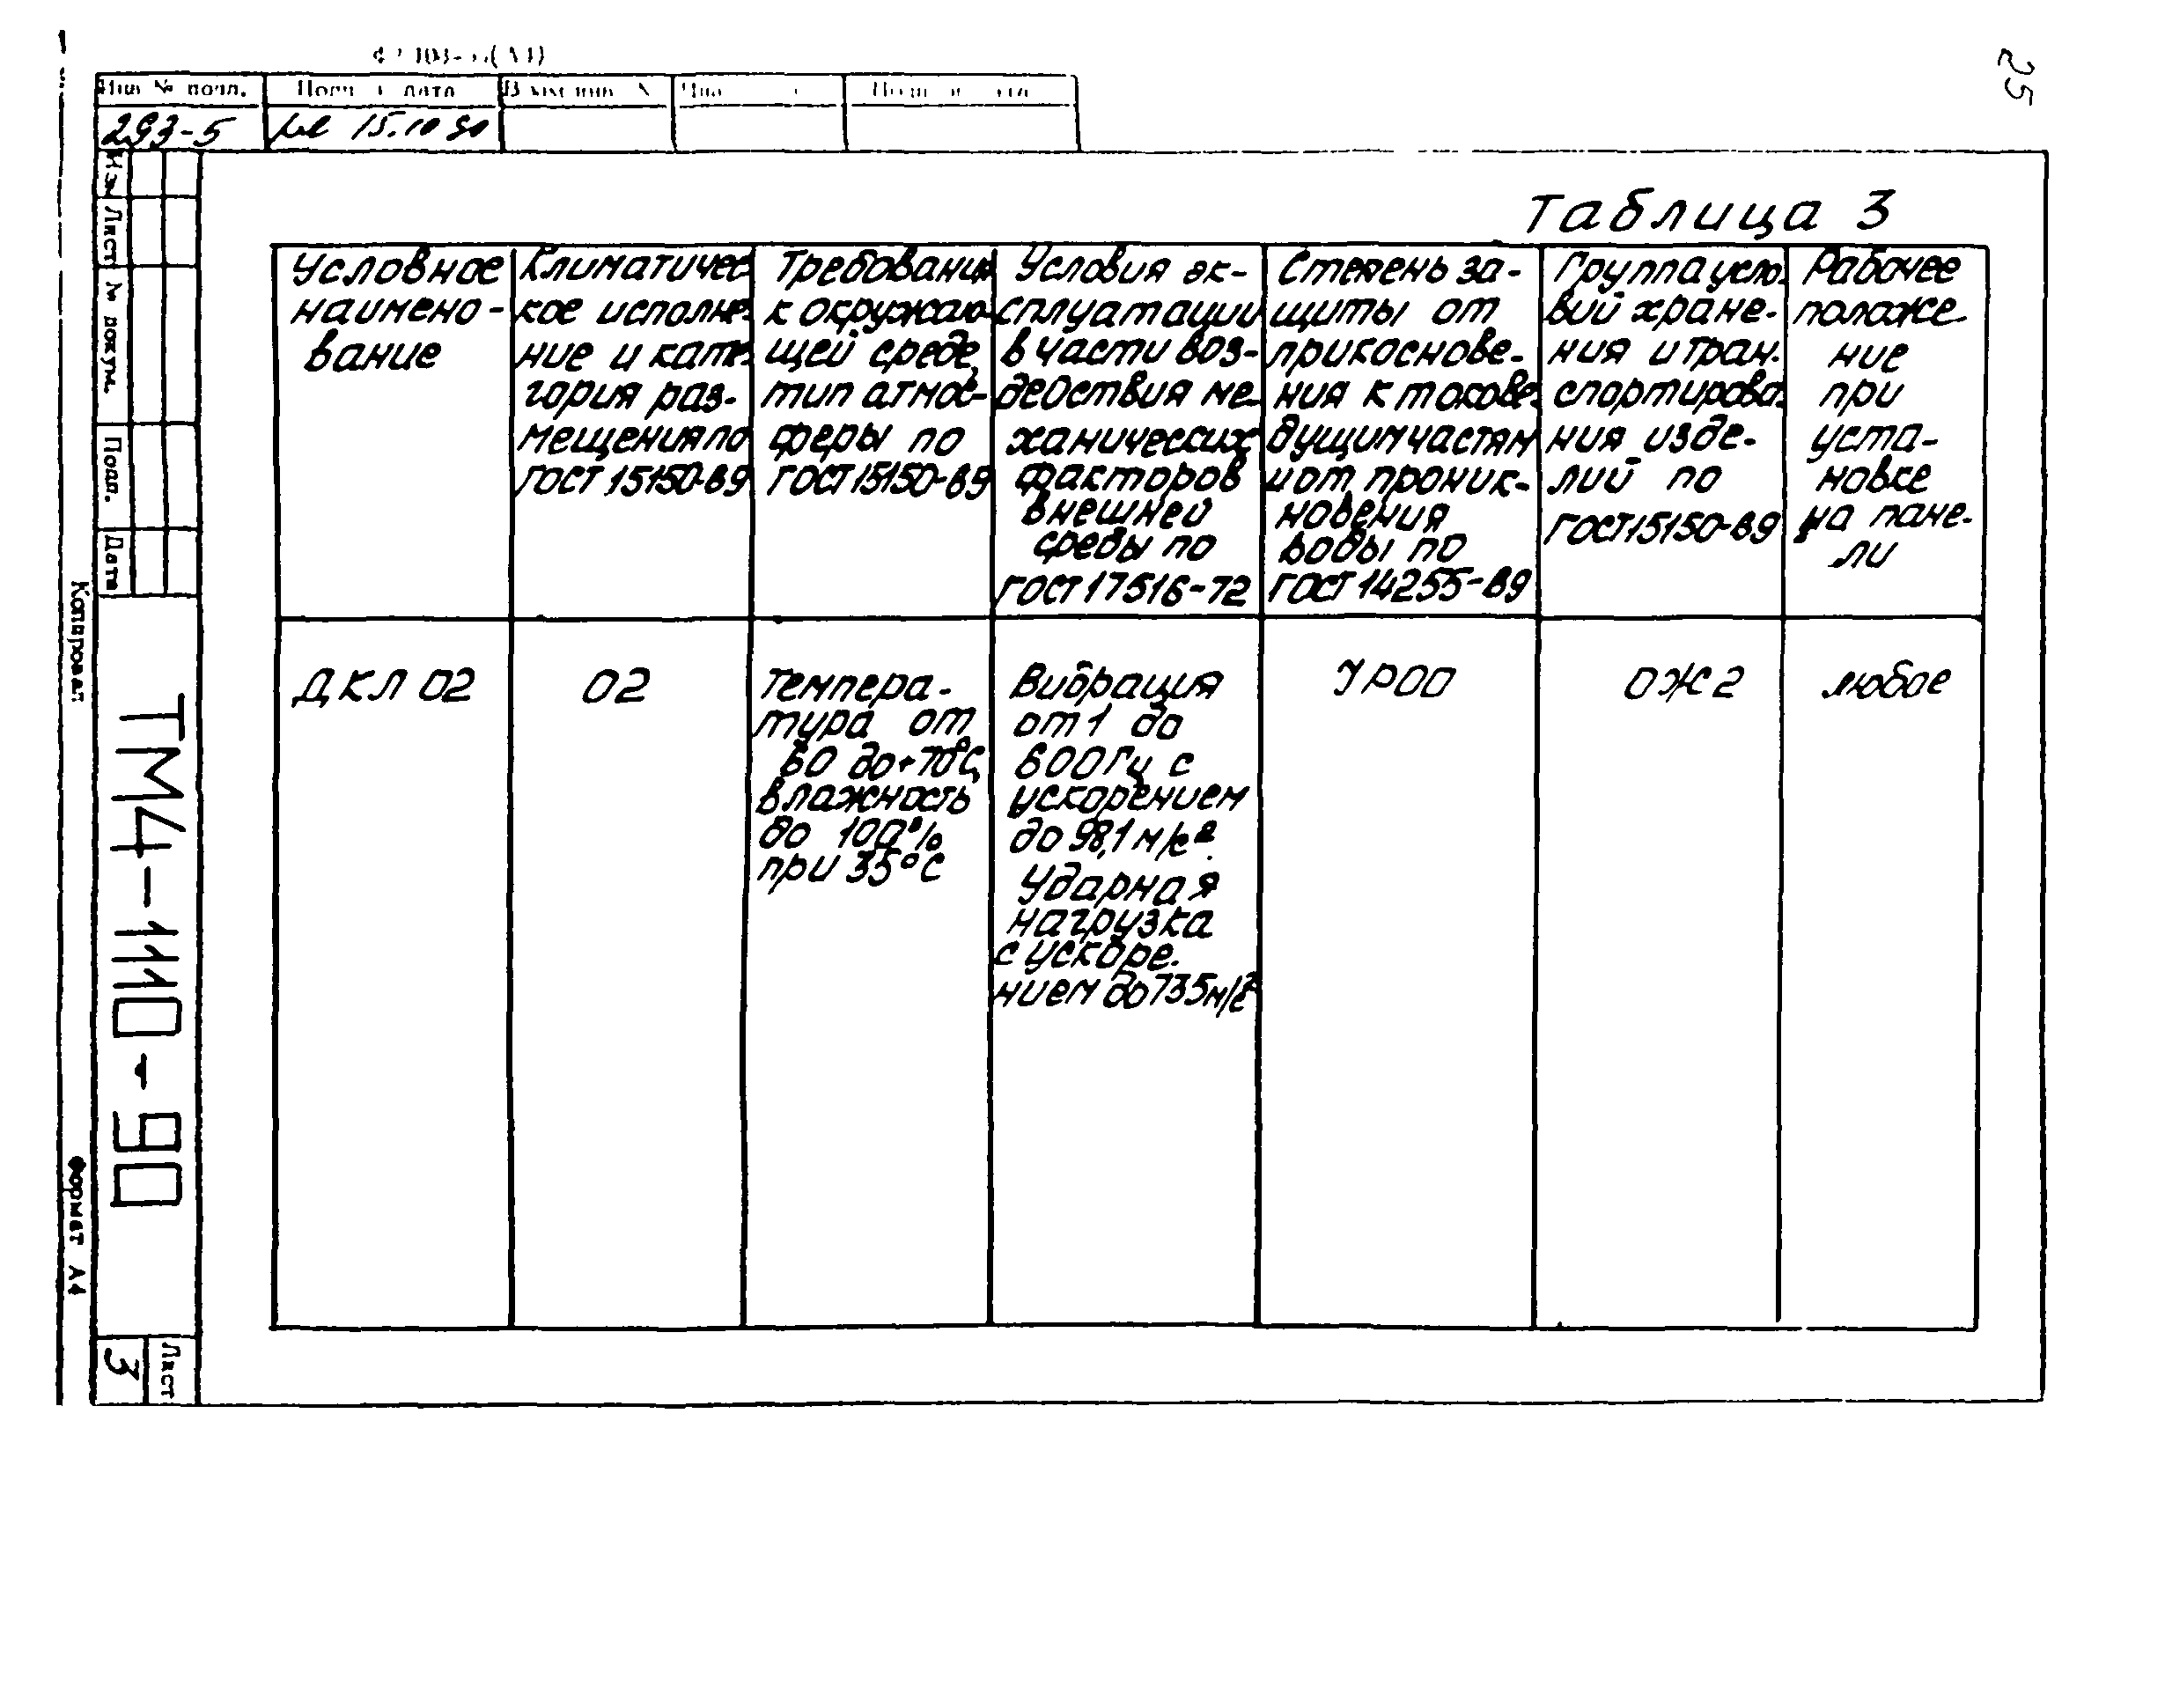 25
Инв № подл.
Подп и дата
Взам инв №
293-5
15.10 90
Изм
Лист
№ докум.
Подп.
Дата
Копировал
ТМ4-1110-90
Формат А4
Лист
3
Таблица 3
Условное
наимено-
вание
Климатичес
кое исполне-
ние и кате-
гория раз-
мещения по
ГОСТ 15150-69
Требования
к окружаю-
щей среде,
тип атмос-
феры по
ГОСТ 15150-69
Условия эк-
сплуатации
в части воз-
действия ме-
ханических
факторов
внешней
среды по
ГОСТ 17516-72
Степень за-
щиты от
прикоснове-
ния к токове-
дущим частям
и от проник-
новения
воды по
ГОСТ 14255-69
Группа усло-
вий хране-
ния и тран-
спортирова-
ния изде-
лий по
ГОСТ 15150-69
Рабочее
положе-
ние
при
уста-
новке
на пане-
ли
ДКЛ 02
02
Темпера-
тура от
60 до +70°С,
влажность
до 100%
при 35°С
Вибрация
от 1 до
600 Гц с
ускорением
до 98,1 м/с²
Ударная
нагрузка
с ускоре-
нием до 735 м/с²
УР00
ОЖ2
любое